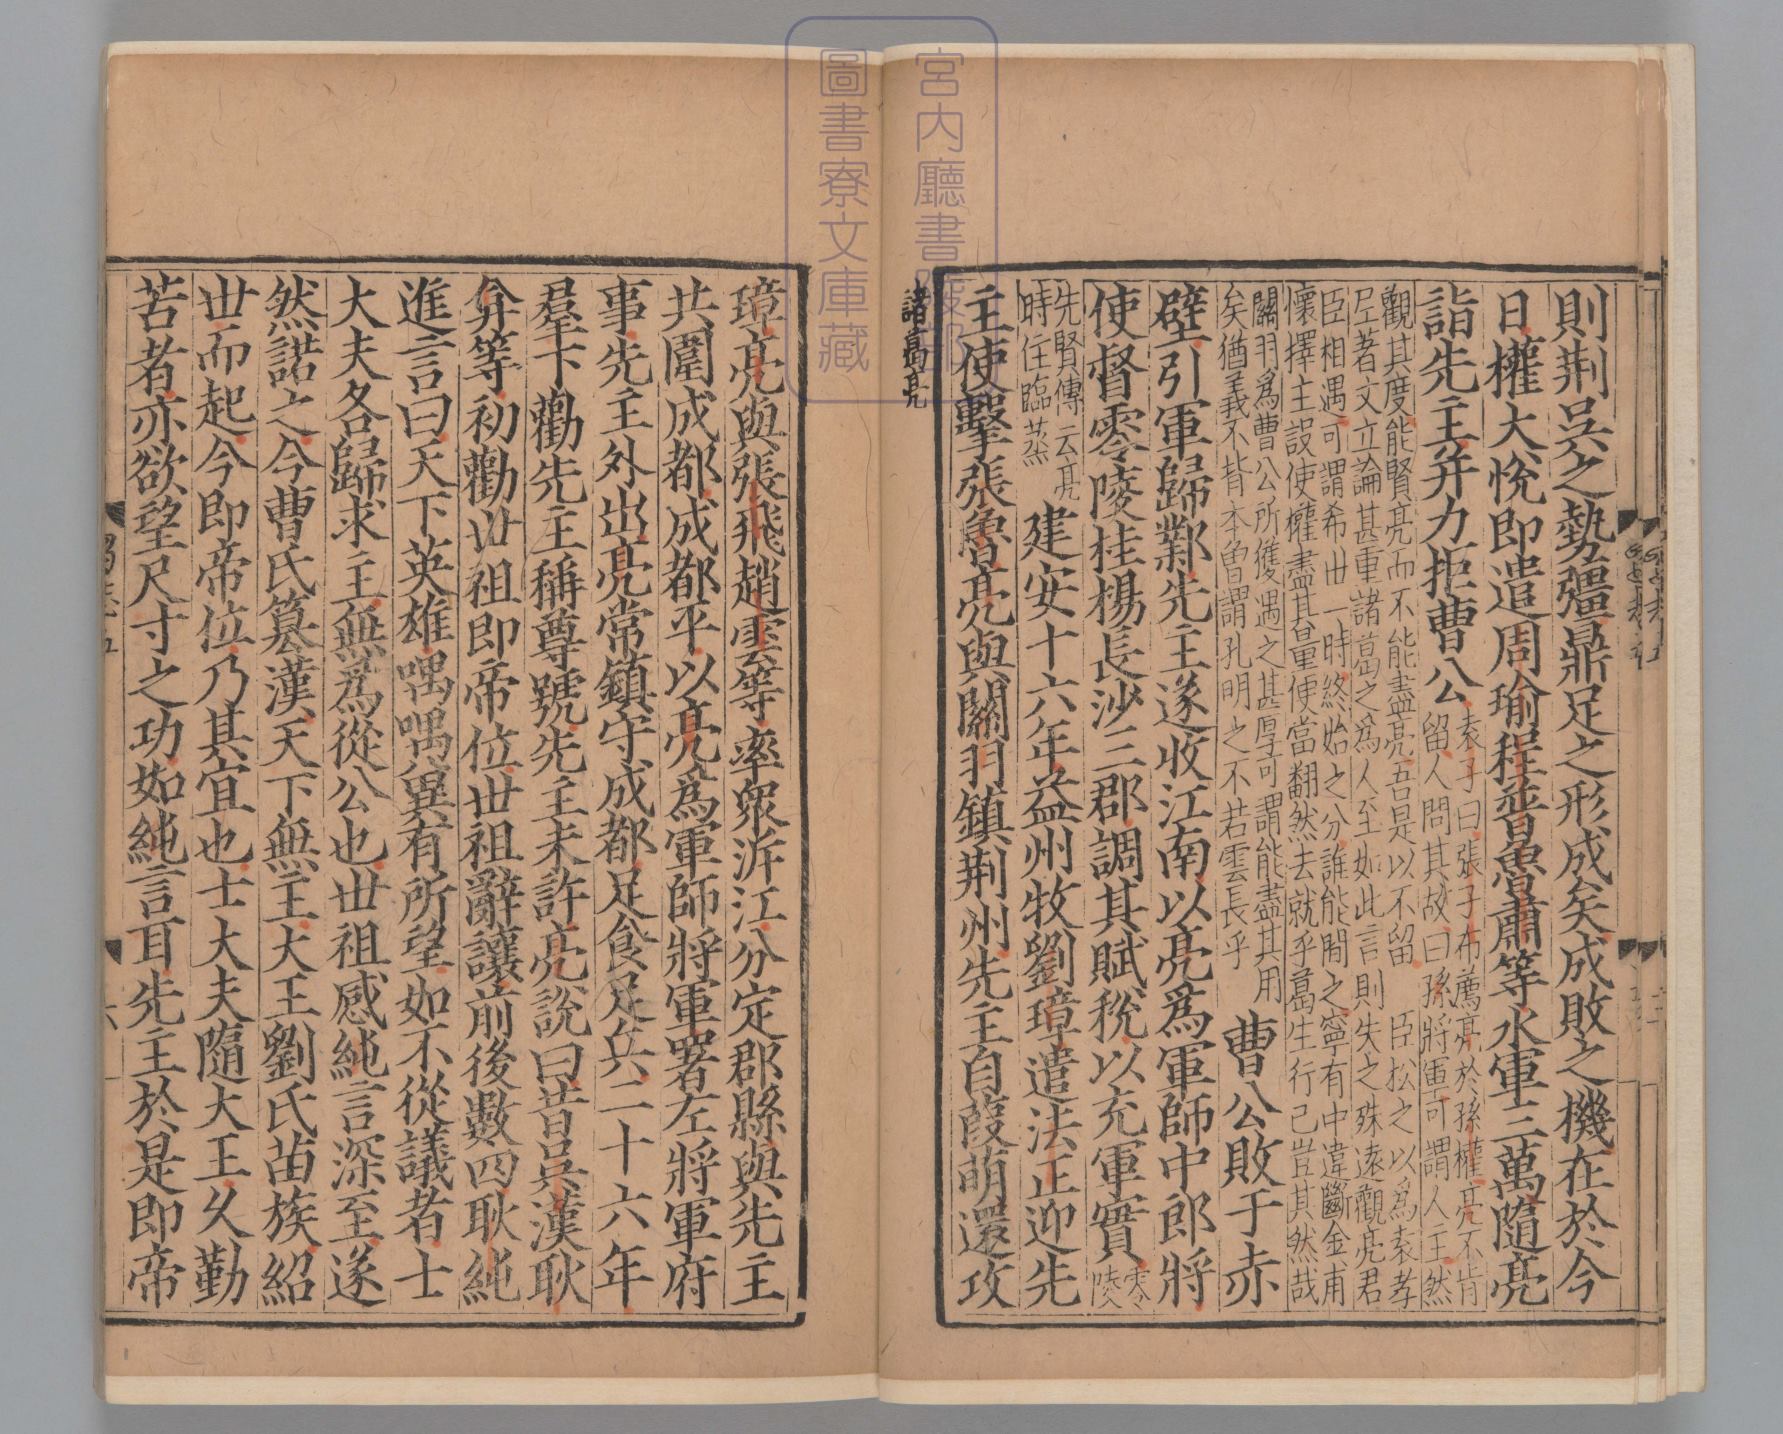 則荆吳之勢彊鼎足之形成矣成敗之機在於今
日權大悅即遣周瑜程普魯肅等水軍三萬隨亮
詣先主并力拒曹公
袁子曰張子布薦亮於孫權亮不肯
留人問其故曰孫將軍可謂人主然
觀其度能賢亮而不能盡亮吾是以不留 臣松之以爲袁孝
尼著文立論甚重諸葛之爲人至如此言則失之殊遠觀亮君
臣相遇可謂希世一時終始之分誰能間之寧有中違斷金甫
懷擇主設使權盡其量便當翻然去就乎葛生行己豈其然哉
關羽爲曹公所獲遇之甚厚可謂能盡其用
矣猶義不背本曾謂孔明之不若雲長乎
曹公敗于赤
壁引軍歸鄴先主遂收江南以亮爲軍師中郎將
使督零陵桂楊長沙三郡調其賦稅以充軍實
零
陵
先賢傳云亮
時住臨蒸
建安十六年益州牧劉璋遣法正迎先
主使擊張魯亮與關羽鎮荆州先主自葭萌還攻
諸葛亮
璋亮與張飛趙雲等率衆泝江分定郡縣與先主
共圍成都成都平以亮爲軍師將軍署左將軍府
事先主外出亮常鎮守成都足食足兵二十六年
羣下勸先主稱尊號先主未許亮說曰昔吳漢耿
弇等初勸世祖即帝位世祖辭讓前後數四耿純
進言曰天下英雄喁喁兾有所望如不從議者士
大夫各歸求主無爲從公也世祖感純言深至遂
然諾之今曹氏篡漢天下無主大王劉氏苗族紹
世而起今即帝位乃其宜也士大夫隨大王乆勤
苦者亦欲望尺寸之功如純言耳先主於是即帝
六
宮内廳書陵部
圖書寮文庫藏